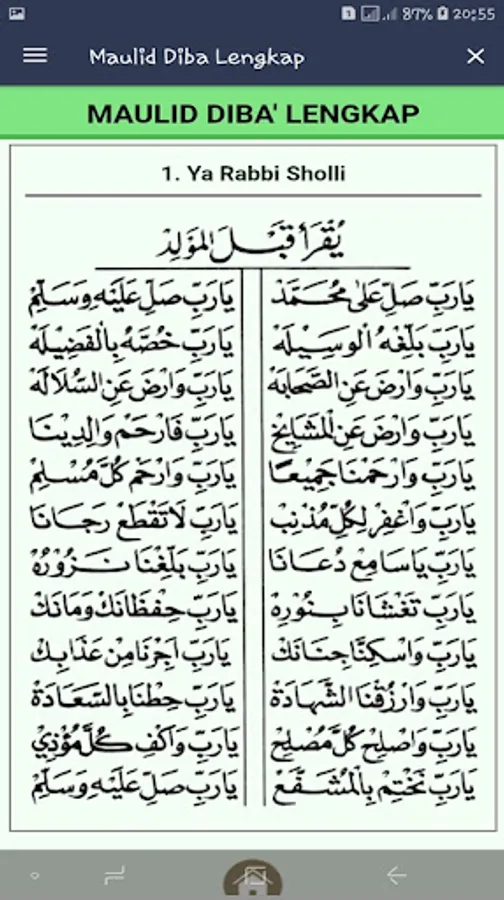 87% 20:55
Maulid Diba Lengkap
MAULID DIBA' LENGKAP
1. Ya Rabbi Sholli
يُقْرَأُ قَبْلَ المَوْلِدْ
يَارَبِّ صَلِّ عَلَى مُحَمَّدْ يَارَبِّ صَلِّ عَلَيْهِ وَسَلِّمْ
يَارَبِّ بَلِّغْهُ الْوَسِيْلَهْ يَارَبِّ خُصَّهُ بِالْفَضِيْلَهْ
يَارَبِّ وَارْضَ عَنِ الصَّحَابَهْ يَارَبِّ وَارْضَ عَنِ السُّلَالَهْ
يَارَبِّ وَارْضَ عَنِ الْمَشَايِخْ يَارَبِّ فَارْحَمْ وَالِدِيْنَا
يَارَبِّ وَارْحَمْنَا جَمِيْعًا يَارَبِّ وَارْحَمْ كُلَّ مُسْلِمْ
يَارَبِّ وَاغْفِرْ لِكُلِّ مُذْنِبْ يَارَبِّ لَا تَقْطَعْ رَجَانَا
يَارَبِّ يَاسَامِعْ دُعَانَا يَارَبِّ بَلِّغْنَا نَزُوْرُهْ
يَارَبِّ تَغْشَانَا بِنُوْرِهْ يَارَبِّ حِفْظَانَكْ وَمَانَكْ
يَارَبِّ وَاسْكِنَّا جِنَانَكْ يَارَبِّ اَجِرْنَا مِنْ عَذَابِكْ
يَارَبِّ وَارْزُقْنَا الشَّهَادَةْ يَارَبِّ حِطْنَا بِالسَّعَادَةْ
يَارَبِّ وَاصْلِحْ كُلَّ مُصْلِحْ يَارَبِّ وَاكْفِ كُلَّ مُؤْذِيْ
يَارَبِّ نَخْتِمْ بِالْمُشَفَّعْ يَارَبِّ صَلِّ عَلَيْهِ وَسَلِّمْ